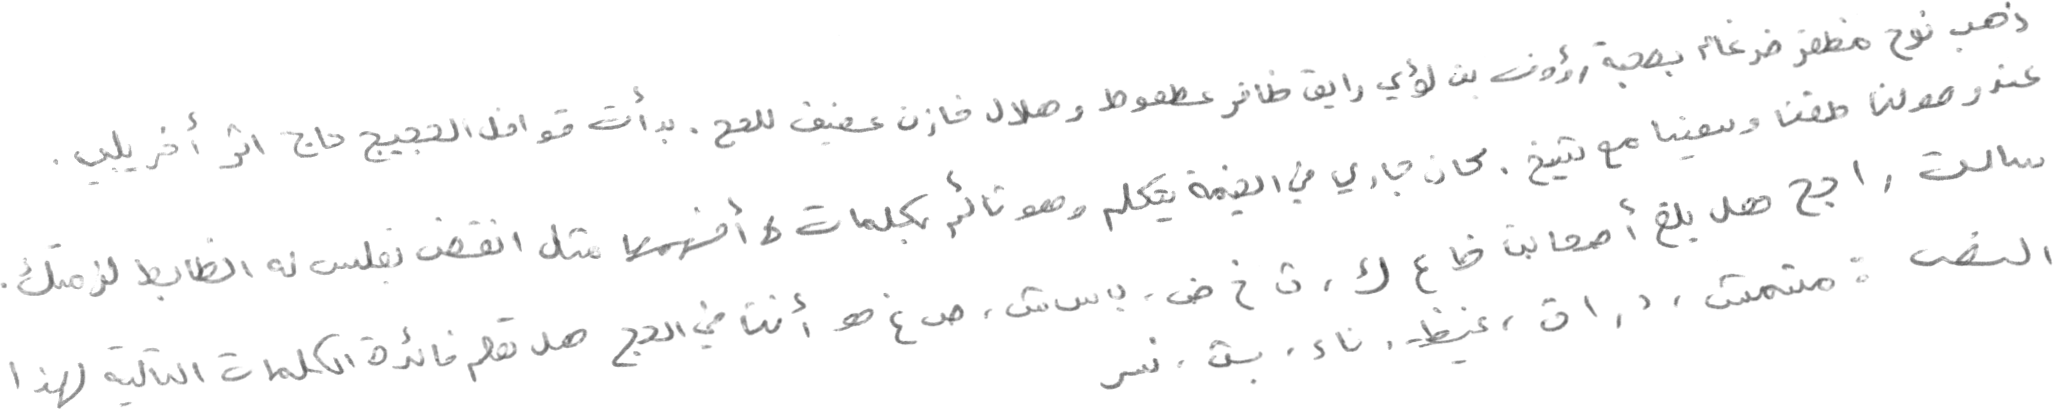 ذهب نوح مظفر ضرغام بصحبة رؤوف بن لؤي رايق ظافر عطعوط وهلال خازن عفيف للحج . بدأت قوافل الحجيج حاج اثر أخر يلبي .
عند وصولنا طفنا وسعينا مع شيخ . كان جاري في الخيمة يتكلم وهو نائم بكلمات لا أفهمها مثل انقض نجلس له الظابط لزمتك .
سالت راجح هل بلغ أصحابنا ظ ا ع ك ، ث خ ض ، ب س ش ، ص غ هو أننا في الحج هل تعلم فائدة الكلمات التالية لهذا
النص ؟ مشمش ، د ر ا ق ، غيظ ، ناء ، بت ، نسر